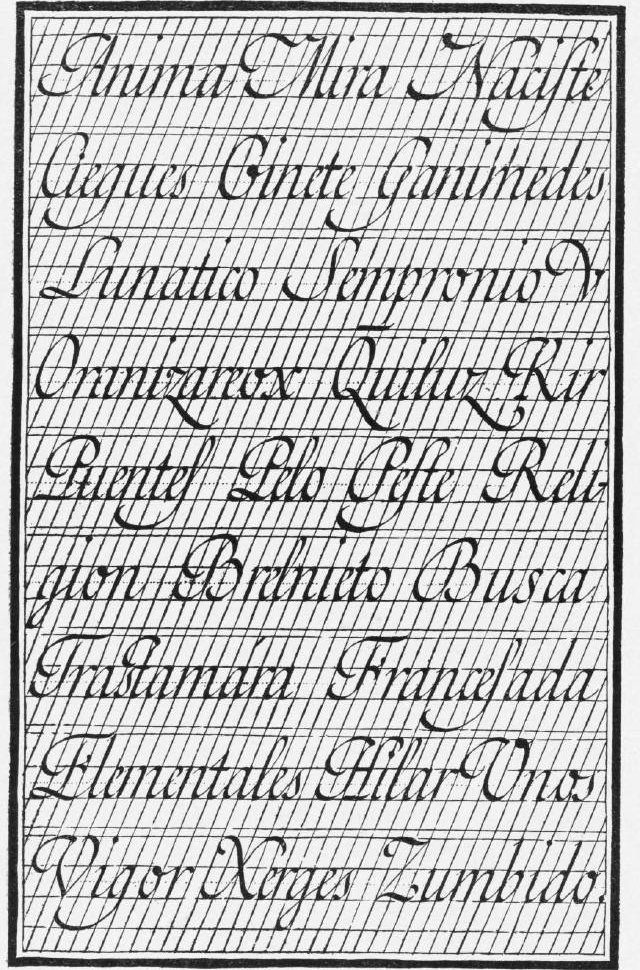 Anima Mira Naciſte
Ciegues Ginete Ganimedes
Lunatico Sempronio V
Omnizareox Quiluz Kir
Puenteſ Pelo Peſte Reli-
gion Breſnieto Busca
Trastamára Franceſada
Elementales Hilar Vnos
Vigor Xerges Zumbido.